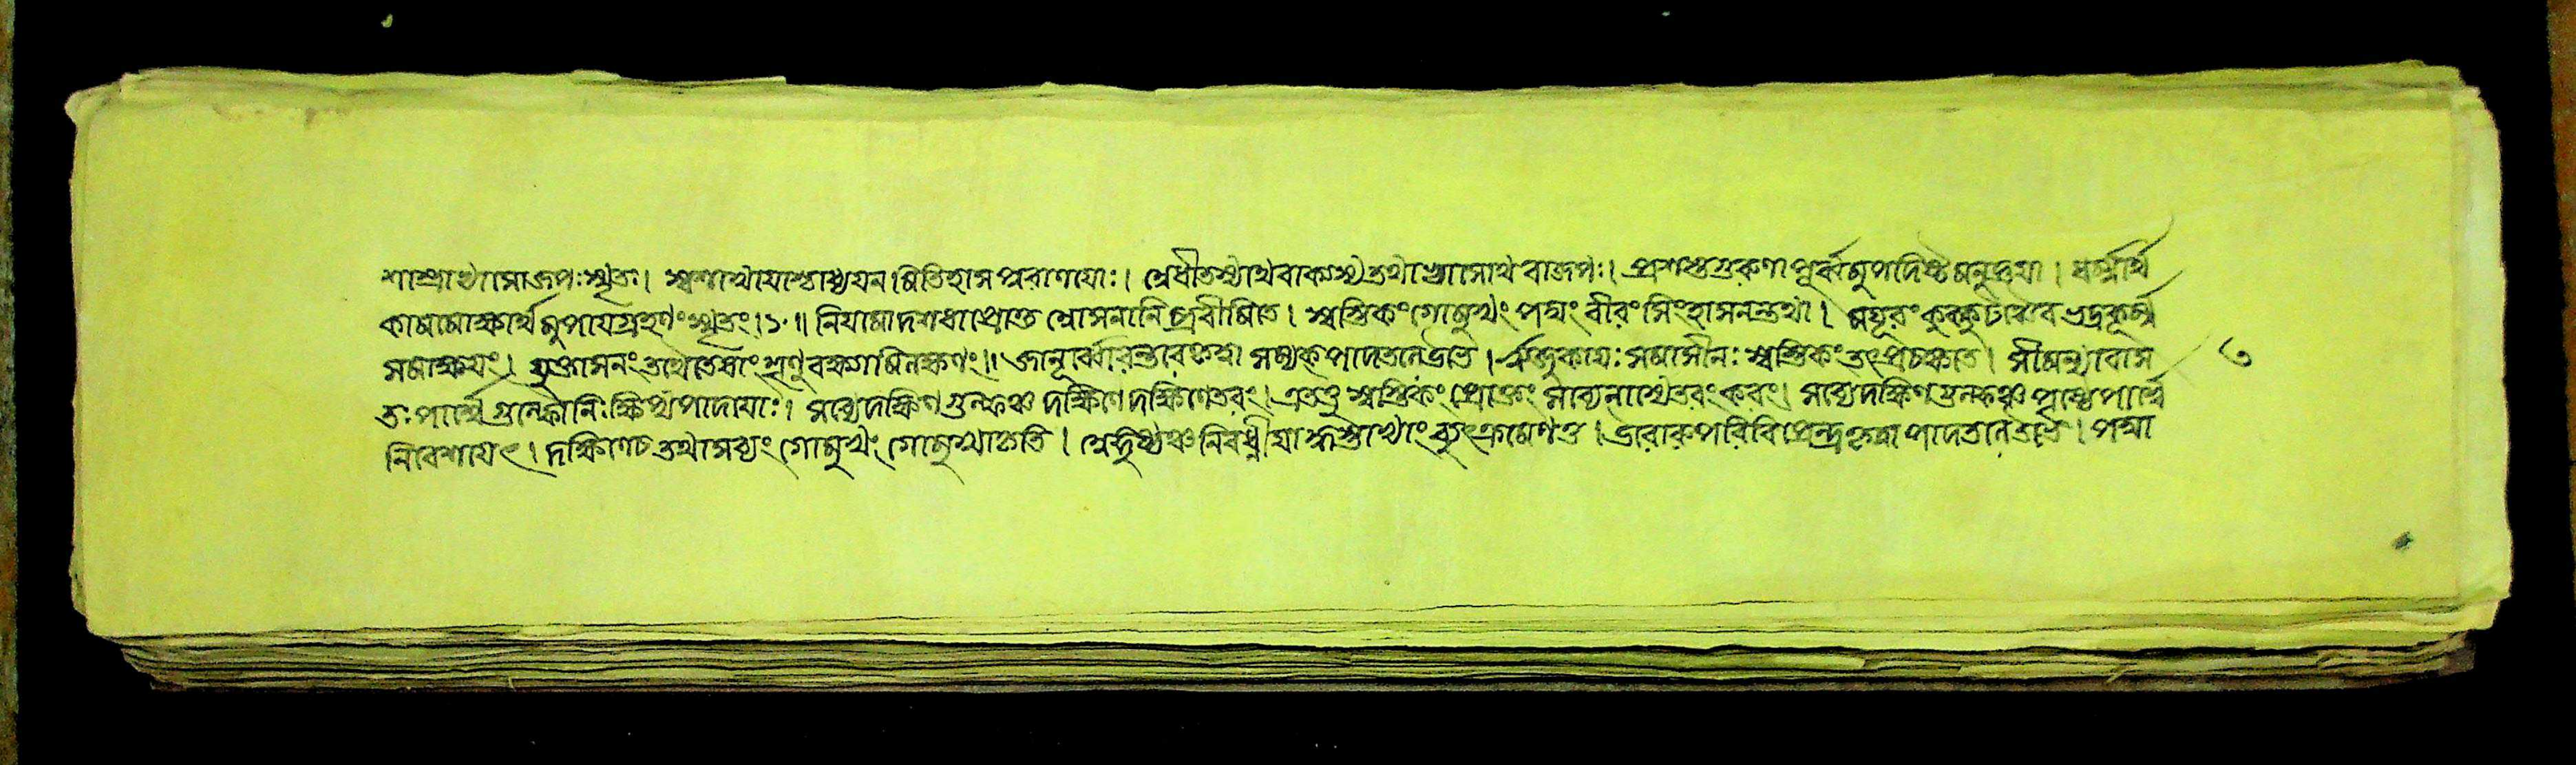 শাস্ত্রাভ্যাসোজপঃস্মৃতঃ। স্বশাখাযাশ্চাধ্যযনমিতিহাসপুরাণযোঃ। শ্লোধীতস্যাথবাকস্যতথাভ্যাসোথবাজপঃ। প্রশস্তগুরুণাপূর্ব্বমুপদিষ্টমনুজ্ঞযা। ধর্ম্মার্থ
কামমোক্ষার্থমুপাযগ্রহণংস্মৃতং।১০॥ নিযমাদশধাপ্রোক্তা শ্লোসনানিপ্রবীমিতে। স্বস্তিকংগোমুখং পদ্মং বীরং সিংহাসনন্তথা। মযূরং কুক্কুটঞ্চৈব ভদ্রকূর্ম্ম
সমাহ্বযং। মুক্তাসনংতথৈতেষাং শৃণুবক্ষ্যামিলক্ষণং॥ জানূর্ব্বোরন্তরেকৃত্বা সম্যক্পাদতলেউভে। ঋজুকাযঃসমাসীনঃ স্বস্তিকংতৎপ্রচক্ষতে। সীমন্যাবাস ৩
তঃপার্শ্বে গুল্ফৌনিঃক্ষিপ্যপাদযোঃ। সব্যেদক্ষিণগুল্ফঞ্চ দক্ষিণেদক্ষিণেতরং। এতত্তু স্বস্তিকং প্রোক্তং সব্যেনান্যেতরংকরং। সব্যেদক্ষিণগুল্ফঞ্চ পৃষ্ঠপার্শ্বে
নিবেশযেৎ। দক্ষিণেচতথাসব্যং গোমুখং গোমুখাকৃতি। শ্লেঙ্গুষ্ঠঞ্চনিবধ্নীযাদ্ধস্তাভ্যাং ব্যুৎক্রমেণতু। ঊর্ব্বোরুপরিবিপ্রেন্দ্র কৃত্বাপাদতলেউভে। পদ্মা